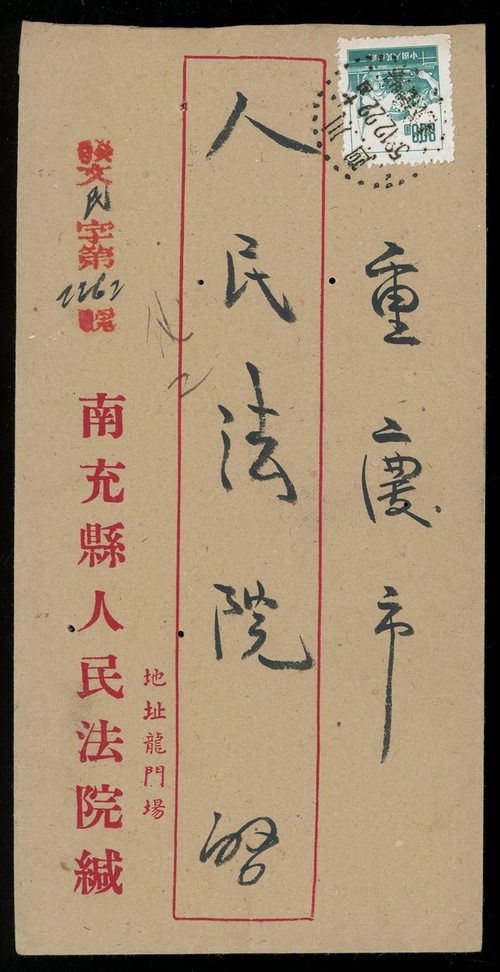 重慶市
人民法院 啓
地址龍門場
南充縣人民法院緘
發文民字第2262號
中國人民郵政
800
四川
53.12.22